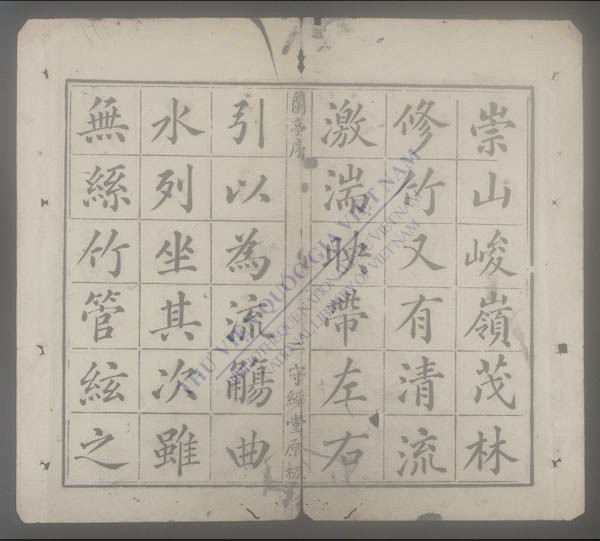 崇山峻嶺茂林
修竹又有清流
激湍映帶左右
蘭亭序
二 守經堂原板
引以為流觴曲
水列坐其次雖
無絲竹管絃之
THƯ VIỆN QUỐC GIA VIỆT NAM
BIBLIOTHEQUE NATIONALE DU VIETNAM
NATIONAL LIBRARY OF VIETNAM